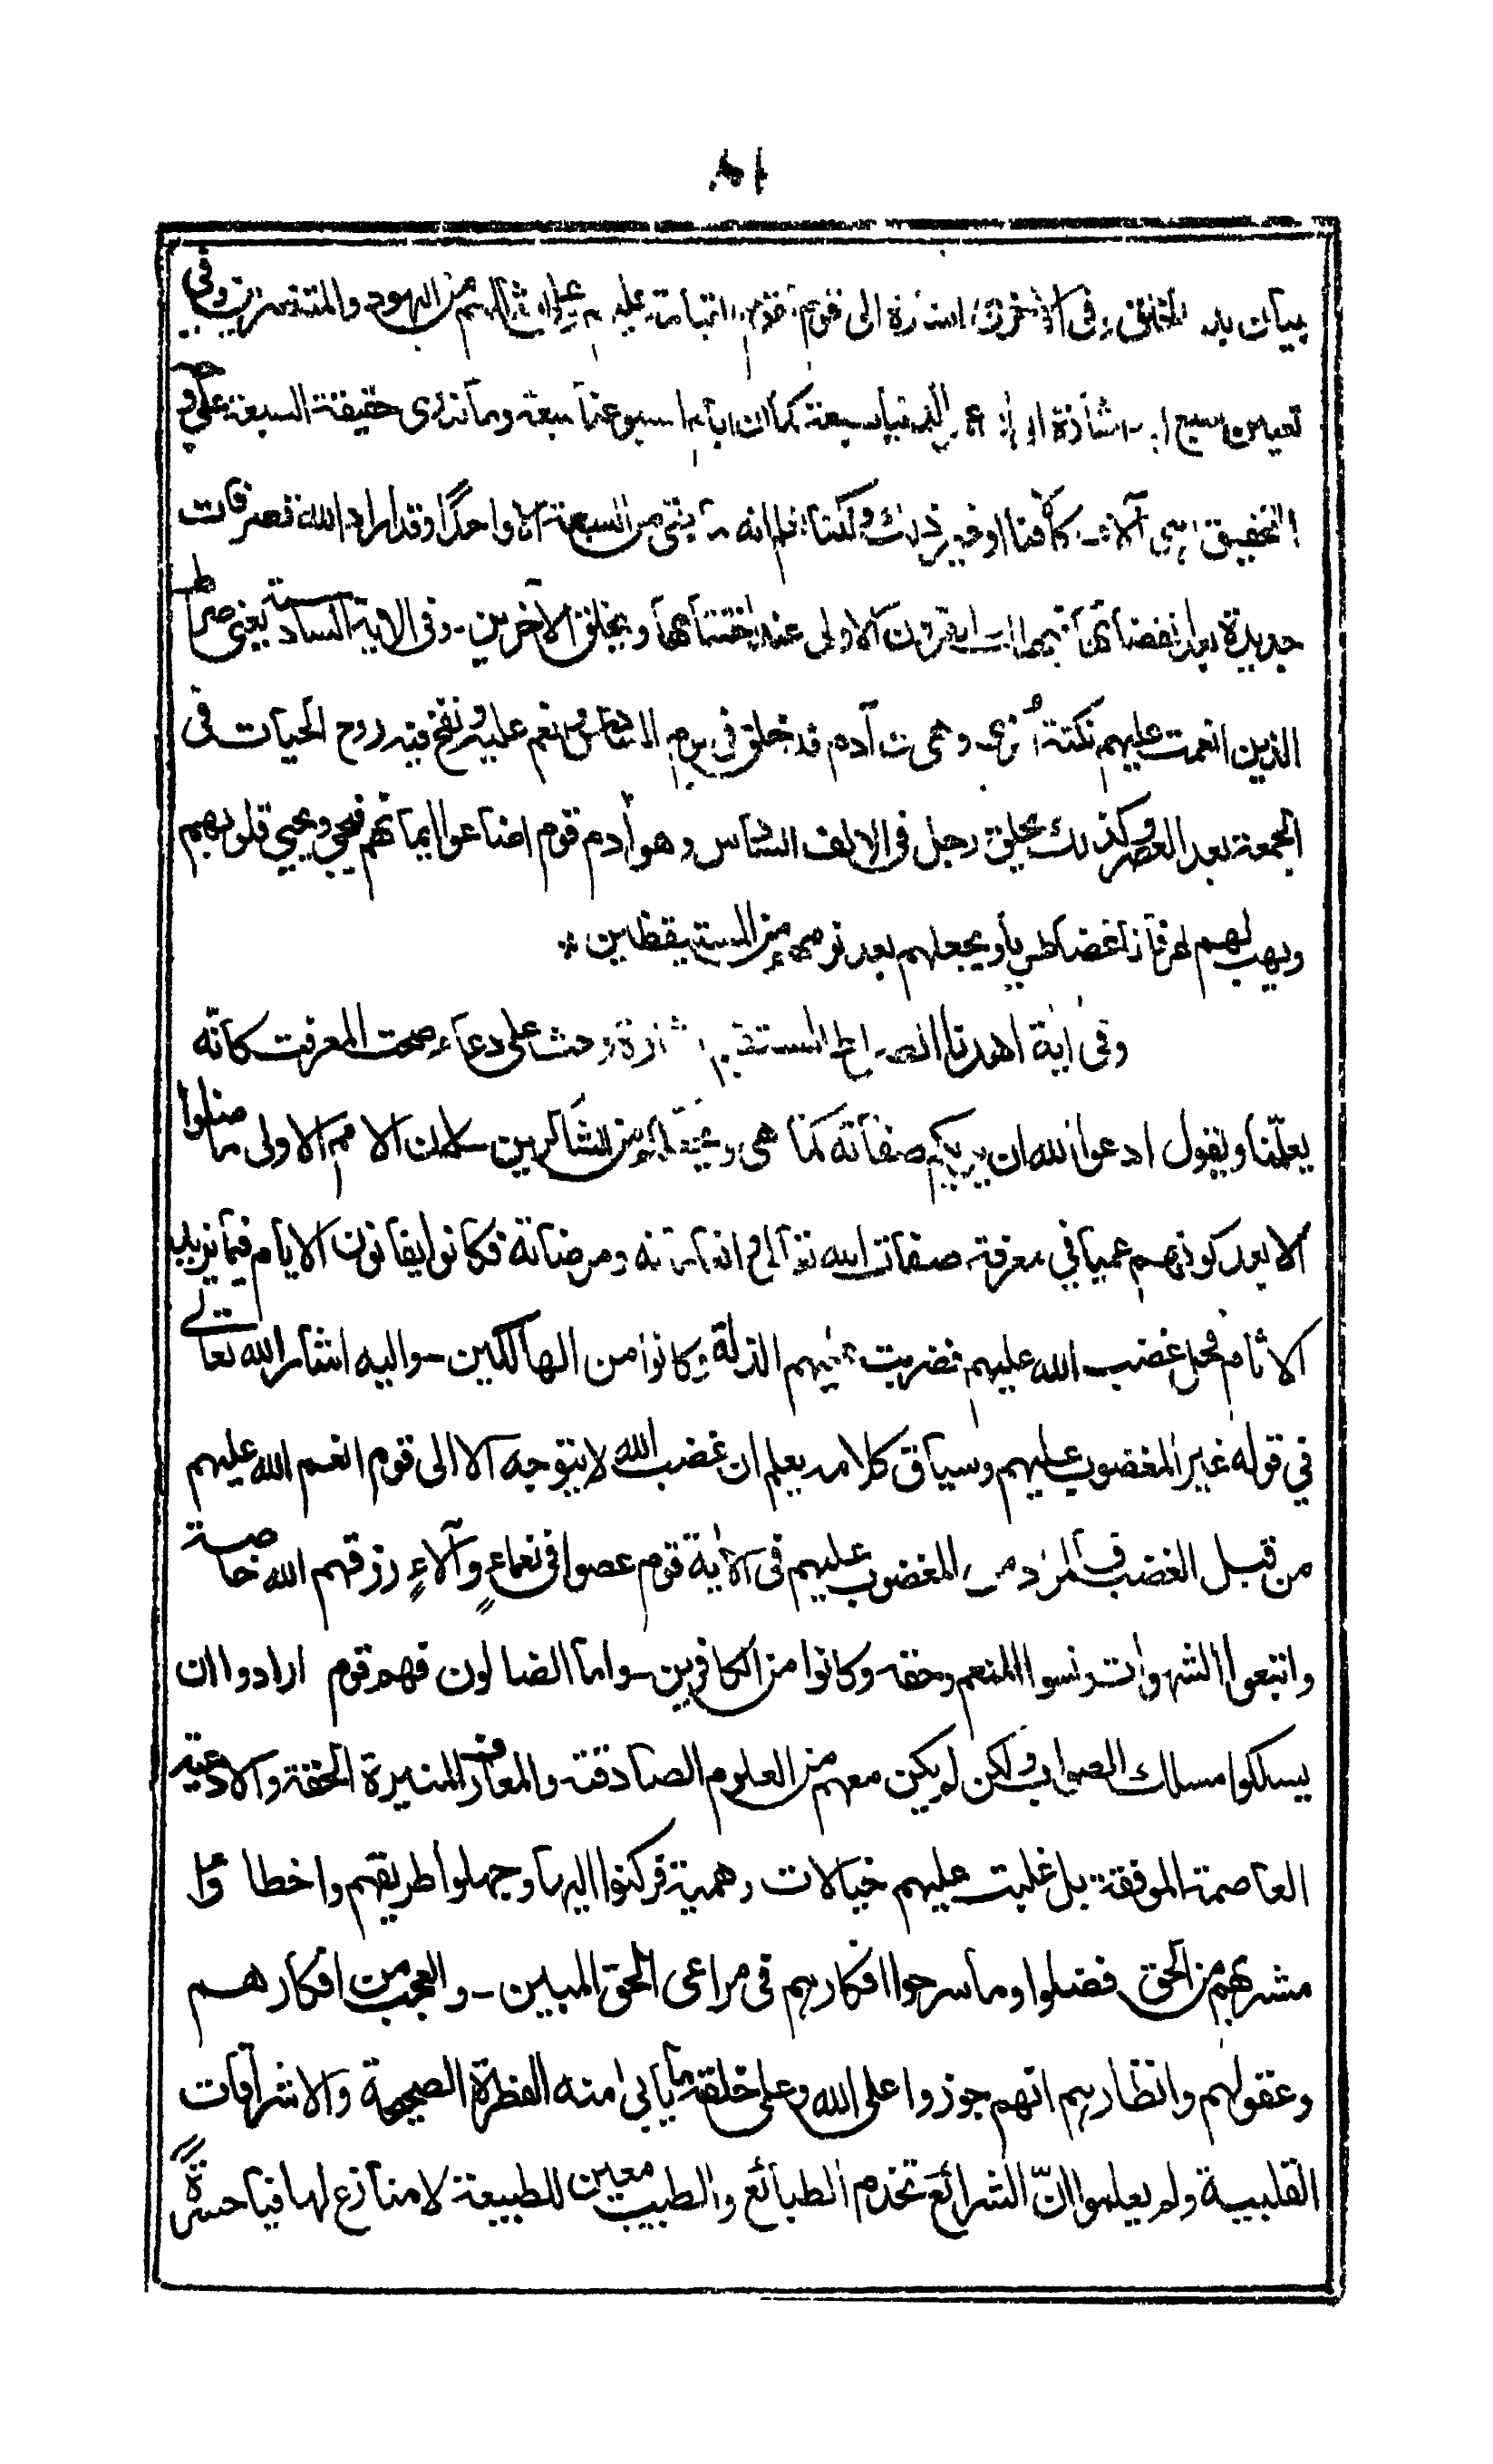 بيان بدء الخلق وفي الأخرى اشارة الى قوم عليهم من اليهود والمتنصرين وفي
تعيين سبع اشارة الى ان عمر الدنيا سبعة كما ان ايام اسبوعنا سبعة وما ندرى حقيقة السبعة على وجه
التحقيق اهى آلاف كآلافنا او غير ذلك ولكنا نعلم انه ما بقى من السبعة الا واحدًا وقد اراد الله تصرفات
جديدة بعد انقضائها القرون الاولى عند اختتامها ويخلق الآخرين - وفى الاية السادسة يعنى صراط
الذين انعمت عليهم نكتة اُخرى وهى ان آدم قد خلق فى يوم السادس وانعم عليه ونفخ فيه روح الحيات فى
الجمعة بعد العصر وكذلك يخلق رجل فى الالف السادس وهو آدم قوم اضاعوا ايمانهم فيجئ ويحيي قلوبهم
ويهب لهم عرفانا غضا طريا ويجعلهم بعد نومهم من المستيقظين *
وفى اية اهدنا الصراط المستقيم اشارة وحث على دعاء صحت المعرفت كانّه
يعلّمنا ويقول ادعوا الله ان يريكم صفاته كما هى ويجعلكم من الشاكرين - لان الامم الاولى ما ضلوا
الا بعد كونهم عميا في معرفة صفات الله تعالى وانعاماته ومرضاته فكانوا يفانون الايام فيما يزيد
الاثام فحل غضب الله عليهم فضربت عليهم الذلة وكانوا من الهالكين - واليه اشار الله تعالى
في قوله غير المغضوب عليهم وسياق كلامه يعلم ان غضب الله لا يتوجه الا الى قوم انعم الله عليهم
من قبل الغضب فالمراد من المغضوب عليهم فى الاية قوم عصوا فى نعماء وآلاءٍ رزقهم الله خاصة
واتبعوا الشهوات ونسوا المنعم وحقه وكانوا من الكافرين - واما الضالون فهم قوم ارادوا ان
يسلكوا مسلك الصواب ولكن لم يكن معهم من العلوم الصادقة والمعارف المنيرة الحقة والادعية
العاصمة الموفقة بل غلبت عليهم خيالات وهمية فركنوا اليها وجهلوا طريقهم واخطاؤا
مشربهم من الحق فضلوا وما سرحوا افكارهم فى مراعى الحق المبين - والعجب من افكارهم
وعقولهم وانظارهم انهم جوزوا على الله وعلى خلقه ما يأبى منه الفطرة الصحيحة والاشراقات
القلبية ولم يعلموا انّ الشرائع تخدم الطبائع والطبيب معين للطبيعة لا منازع لها فيا حسرةً